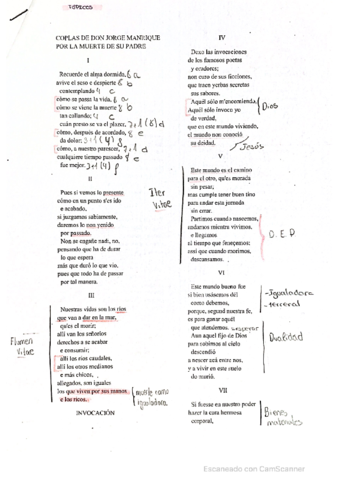 COPLAS DE DON JORGE MANRIQUE
POR LA MUERTE DE SU PADRE
I
Recuerde el alma dormida, 8 a
avive el seso e despierte 8 b
contemplando 4 c
cómo se passa la vida, 8 a
cómo se viene la muerte 8 b
tan callando; 4 c
cuán presto se va el plazer,
cómo, después de acordado,
da dolor;
cómo, a nuestro parescer,
cualquiere tiempo passado
fue mejor.
II
Pues si vemos lo presente
cómo en un punto s'es ido
e acabado,
si juzgamos sabiamente,
daremos lo non venido
por passado.
Non se engañe nadi, no,
pensando que ha de durar
lo que espera
más que duró lo que vio,
pues que todo ha de passar
por tal manera.
Iter
Vitae
III
Nuestras vidas son los ríos
que van a dar en la mar,
qu'es el morir;
allí van los señoríos
derechos a se acabar
e consumir;
allí los ríos caudales,
allí los otros medianos
e más chicos,
allegados, son iguales
los que viven por sus manos
e los ricos.
Flumen
Vitae
muerte como
igualadora
INVOCACIÓN
IV
Dexo las invocaciones
de los famosos poetas
y oradores;
non curo de sus ficciones,
que traen yerbas secretas
sus sabores.
Aquél sólo m'encomiendo,
Aquél sólo invoco yo
de verdad,
que en este mundo viviendo,
el mundo non conoció
su deidad.
Dios
Jesús
V
Este mundo es el camino
para el otro, qu'es morada
sin pesar;
mas cumple tener buen tino
para andar esta jornada
sin errar.
Partimos cuando nascemos,
andamos mientra vivimos,
e llegamos
al tiempo que feneçemos;
assí que cuando morimos,
descansamos.
D.E.P
VI
Este mundo bueno fue
si bien usásemos dél
como debemos,
porque, segund nuestra fe,
es para ganar aquél
que atendemos.
Aun aquel fijo de Dios
para sobirnos al cielo
descendió
a nescer acá entre nos,
y a vivir en este suelo
do murió.
- Igualadora
- terrenal
Dualidad
VII
Si fuesse en nuestro poder
hazer la cara hermosa
corporal,
Bienes
materiales
Escaneado con CamScanner